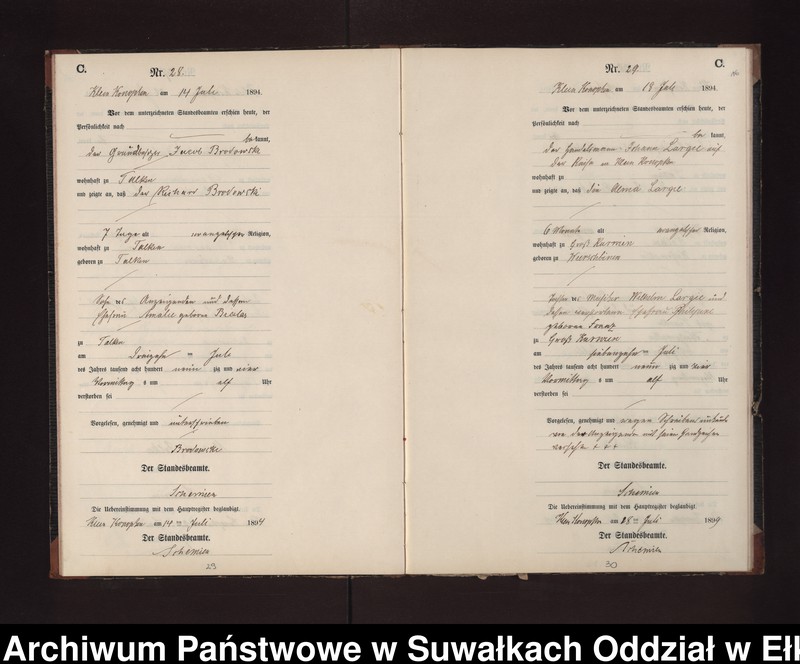 C.
Nr. 28.
Klein Konopken am 14 Juli 1894.
Vor dem unterzeichneten Standesbeamten erschien heute, der
Persönlichkeit nach
be kannt,
der Grundbesitzer Jacob Brodowski
wohnhaft zu Talken
und zeigte an, daß der Richard Brodowski
7 Tage alt evangelischer Religion,
wohnhaft zu Talken
geboren zu Talken
Sohn des Anzeigenden und dessen
Ehefrau Amalie geborne
zu Talken
am Dreizehn ten Juli
des Jahres tausend acht hundert neun zig und vier
Vormittag s um elf Uhr
verstorben sei
Vorgelesen, genehmigt und unterschrieben
Brodowski
Der Standesbeamte.
Die Uebereinstimmung mit dem Hauptregister beglaubigt.
Klein Konopken am 14 ten Juli 1894
Der Standesbeamte.
29
C.
Nr. 29
Klein Konopken am 18 Juli 1894.
Vor dem unterzeichneten Standesbeamten erschien heute, der
Persönlichkeit nach
be kannt,
der Handelsmann Johann Largie
Klein Konopken
wohnhaft zu
und zeigte an, daß die Largie
6 Monate alt evangelischer Religion,
wohnhaft zu Groß
geboren zu
Tochter des Wilhelm Largie und
dessen Ehefrau
geborene
zu Groß
am siebenzehn ten Juli
des Jahres tausend acht hundert neun zig und vier
Vormittag s um elf Uhr
verstorben sei
Vorgelesen, genehmigt und wegen Schreibensunkunde
von dem Anzeigenden mit seinem Handzeichen
versehen + + +
Der Standesbeamte.
Die Uebereinstimmung mit dem Hauptregister beglaubigt.
Klein Konopken am 18 ten Juli 1894
Der Standesbeamte.
30
Archiwum Państwowe w Suwałkach Oddział w Ełk